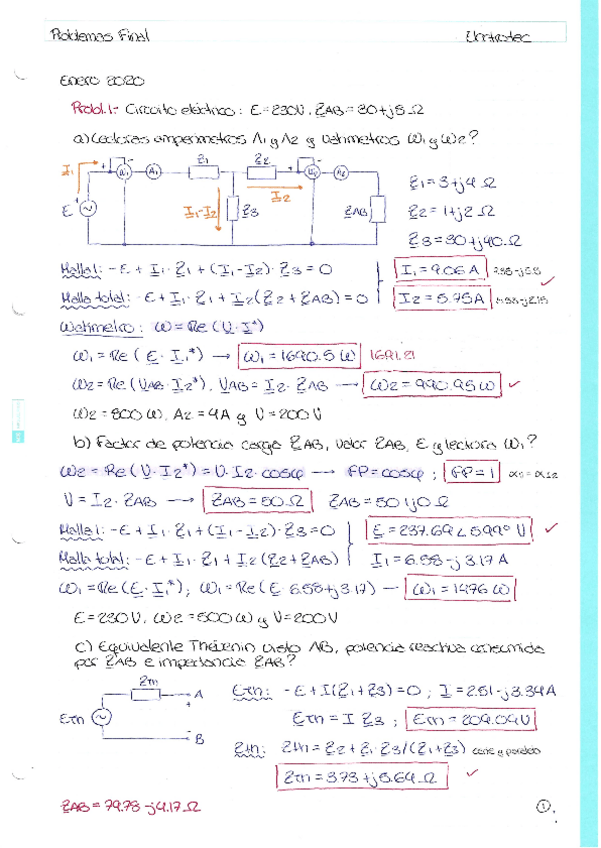 Problemas Final
Enero 2020
Probl.1:- Circuito eléctrico: E=230V, ZAB=30+j8 Ω
a) Lecturas amperímetros A1 y A2 y Watimetros W1 y W2?
I1 + W1 A1 Z1 Z2 + W2 A2
E I1-I2 Z3 I2 ZAB
Z1=3+j4 Ω
Z2=1+j2 Ω
Z3=30+j40 Ω
Malla1: -E+I1·Z1+(I1-I2)·Z3=0 I1=9.06A
Malla total: -E+I1·Z1+I2(Z2+ZAB)=0 I2=5.75A
Watimetro: W=Re(U·I*)
W1=Re(E·I1*) → W1=1690.5W 1691.21
W2=Re(UAB·I2*), UAB=I2·ZAB → W2=990.95W ✓
W2=800W, A2=4A y V=200V
b) Factor de potencia carga ZAB, valor ZAB, E y lectura W1?
W2=Re(U·I2*)=U·I2·cosφ → FP=cosφ; FP=1
U=I2·ZAB → ZAB=50Ω ZAB=50+j0Ω
Malla1: -E+I1·Z1+(I1-I2)·Z3=0 E=237.69∠5.99° V ✓
Malla total: -E+I1·Z1+I2(Z2+ZAB) I1=6.58-j3.17A
W1=Re(E·I1*); W1=Re(E·6.58+j3.17) — W1=1476W
E=230V, W2=500W y V=200V
c) Equivalente Thévenin visto AB, potencia reactiva consumida
por ZAB e impedancia ZAB?
Zth A
+
Eth
- B
Eth: -E+I(Z1+Z3)=0; I=2.51-j3.34A
Eth=I·Z3; Eth=209.09V
Zth: Zth=Z2+Z1·Z3/(Z1+Z3)
Zth=3.73+j5.64Ω ✓
ZAB=79.78-j4.17Ω
1